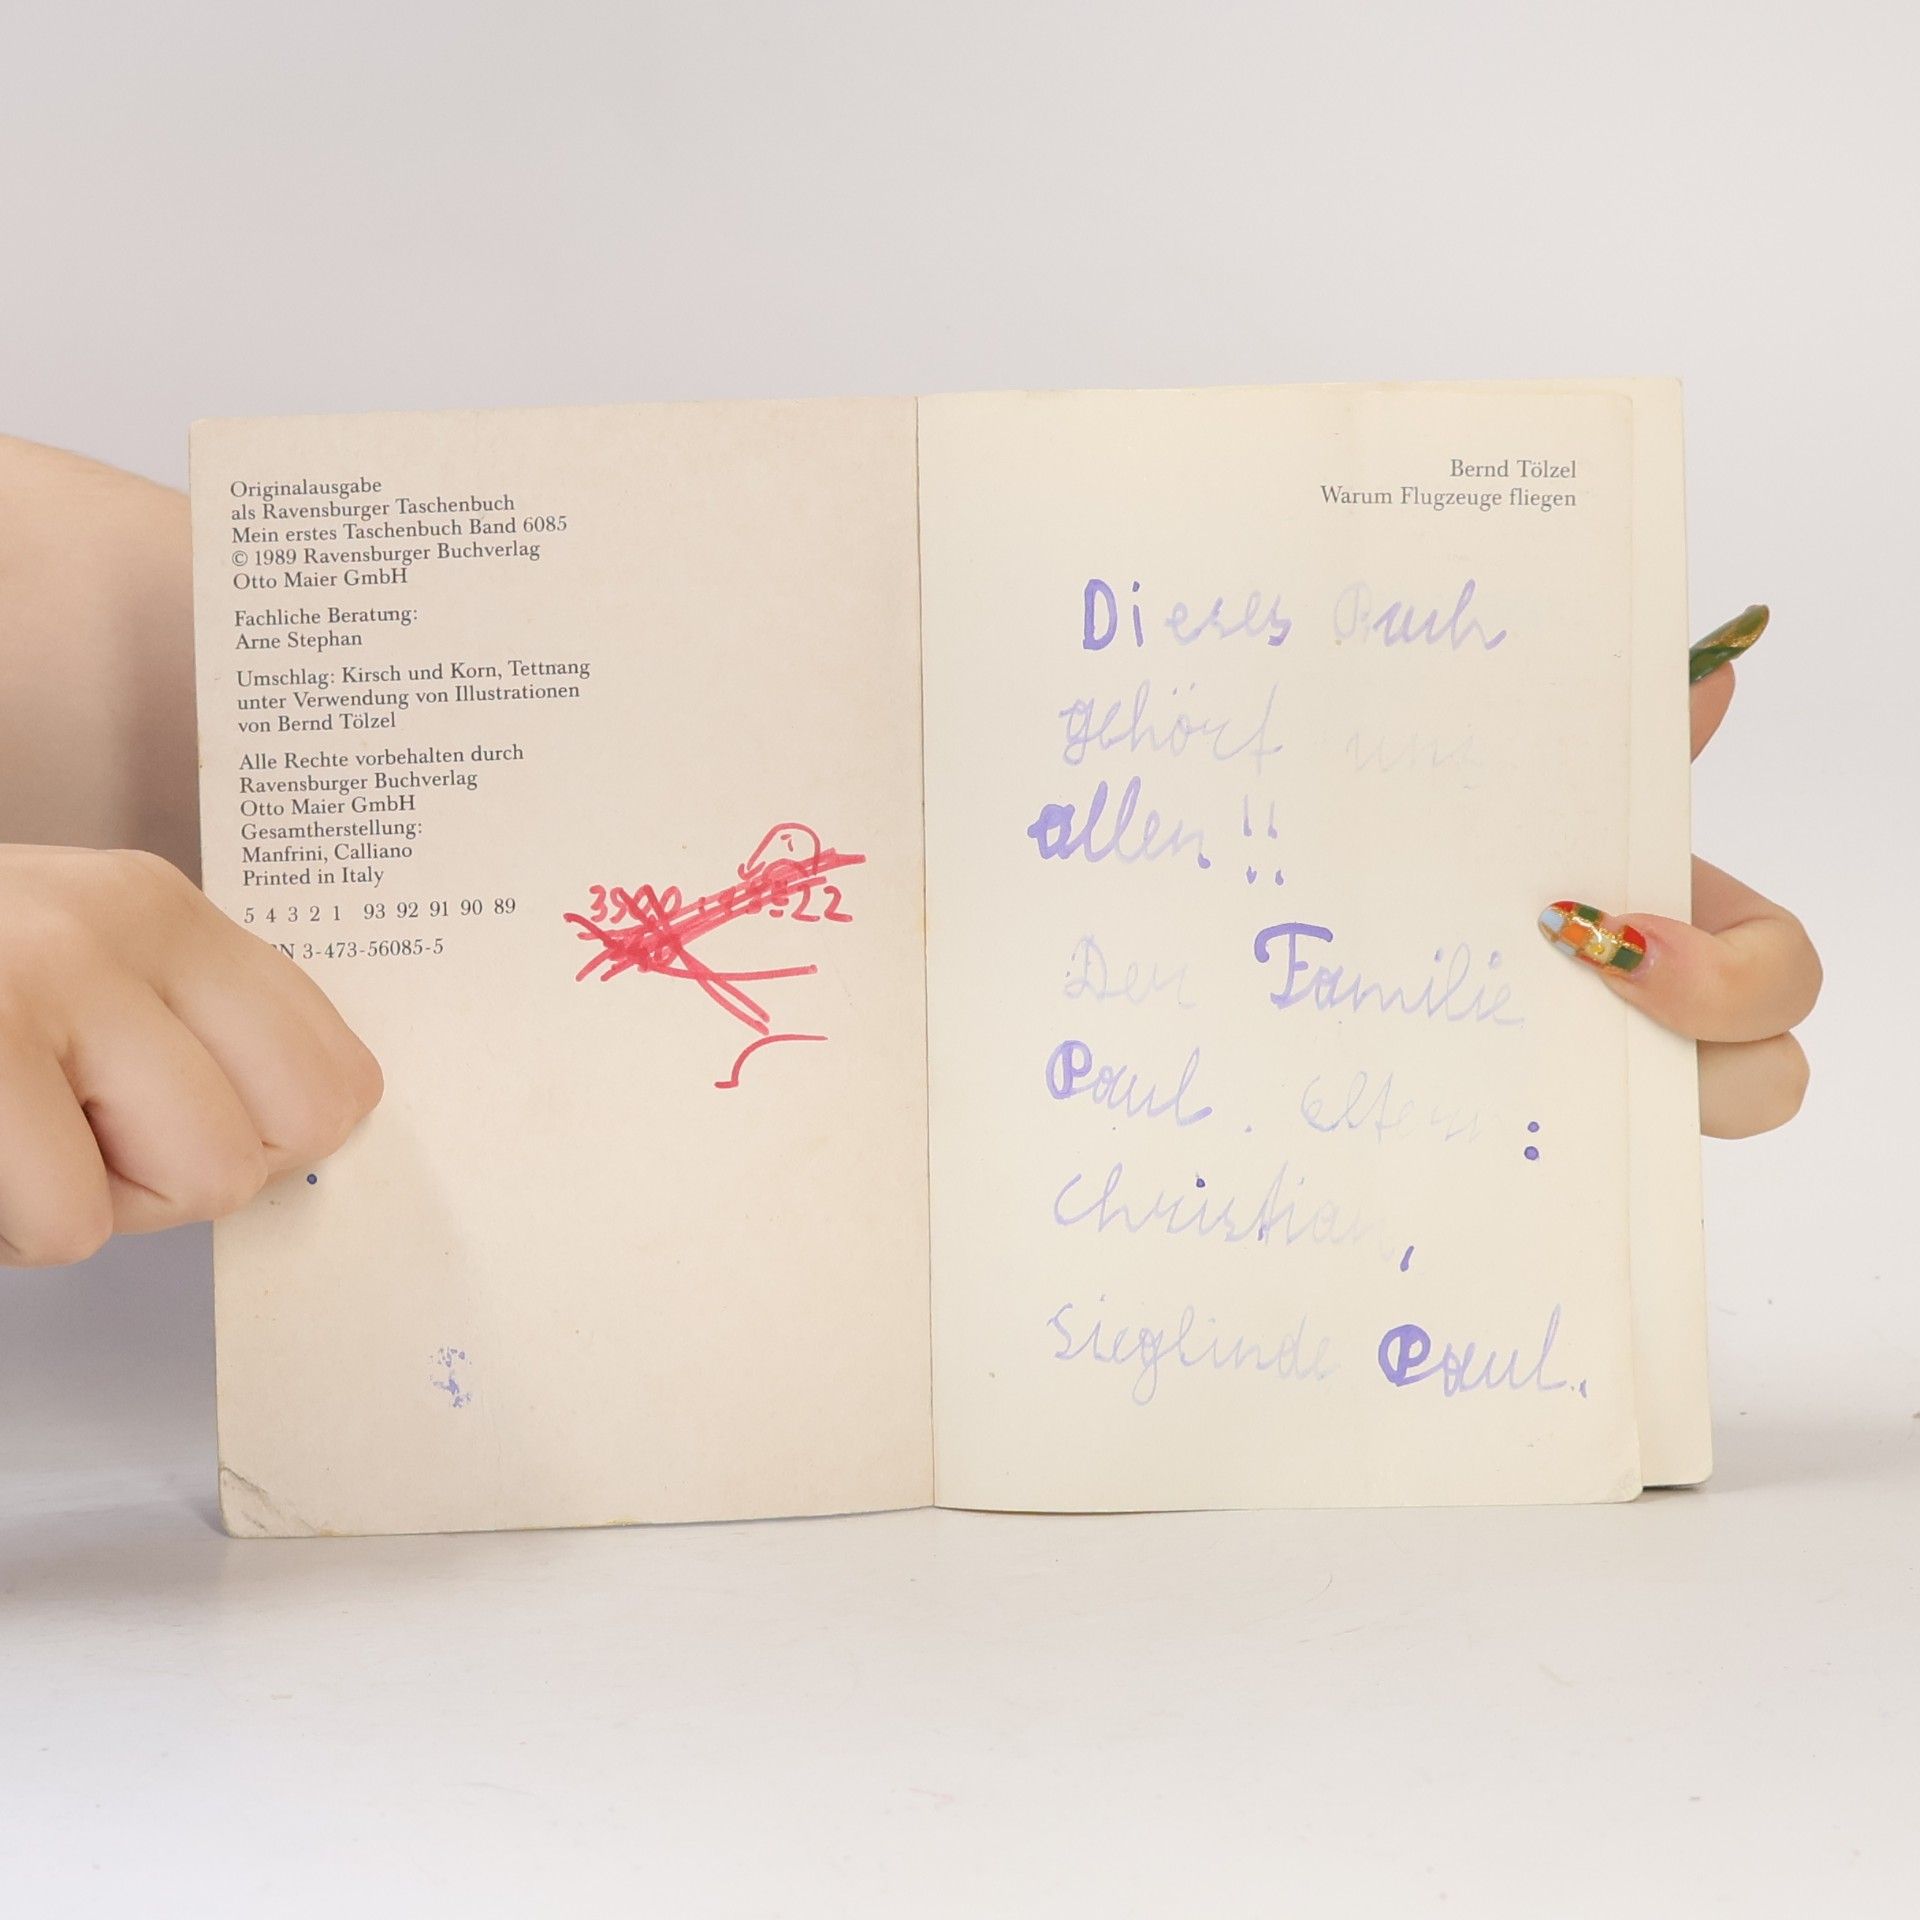 Originalausgabe
als Ravensburger Taschenbuch
Mein erstes Taschenbuch Band 6085
© 1989 Ravensburger Buchverlag
Otto Maier GmbH
Fachliche Beratung:
Arne Stephan
Umschlag: Kirsch und Korn, Tettnang
unter Verwendung von Illustrationen
von Bernd Tölzel
Alle Rechte vorbehalten durch
Ravensburger Buchverlag
Otto Maier GmbH
Gesamtherstellung:
Manfrini, Calliano
Printed in Italy
5 4 3 2 1 93 92 91 90 89
3-473-56085-5
Bernd Tölzel
Warum Flugzeuge fliegen
Dieses Buch
gehört uns
allen!!
Der Familie
Paul. Eltern:
Christian,
Sieglinde Paul.